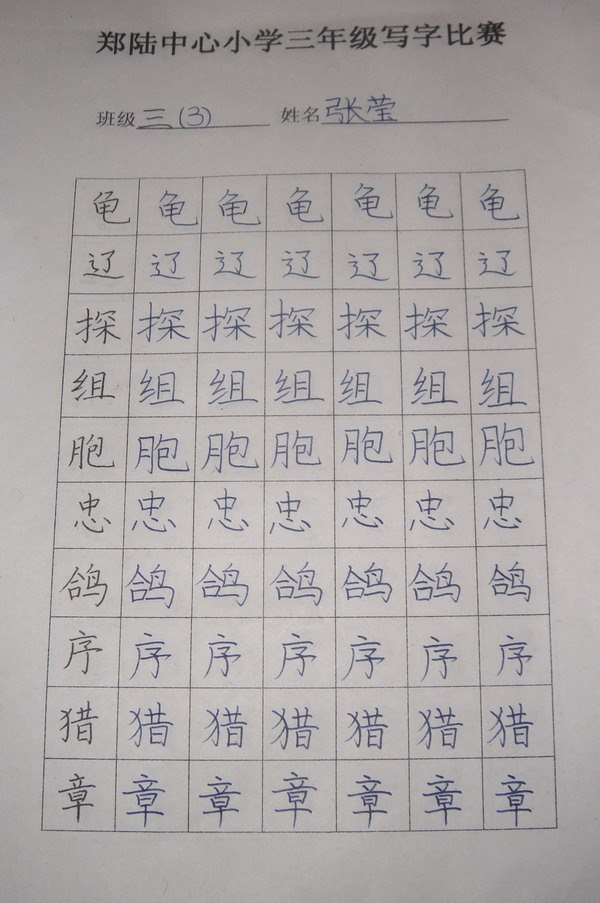 郑陆中心小学三年级写字比赛
班级 三(3) 姓名 张莹
龟 龟 龟 龟 龟 龟 龟
辽 辽 辽 辽 辽 辽 辽
探 探 探 探 探 探 探
组 组 组 组 组 组 组
胞 胞 胞 胞 胞 胞 胞
忠 忠 忠 忠 忠 忠 忠
鸽 鸽 鸽 鸽 鸽 鸽 鸽
序 序 序 序 序 序 序
猎 猎 猎 猎 猎 猎 猎
章 章 章 章 章 章 章